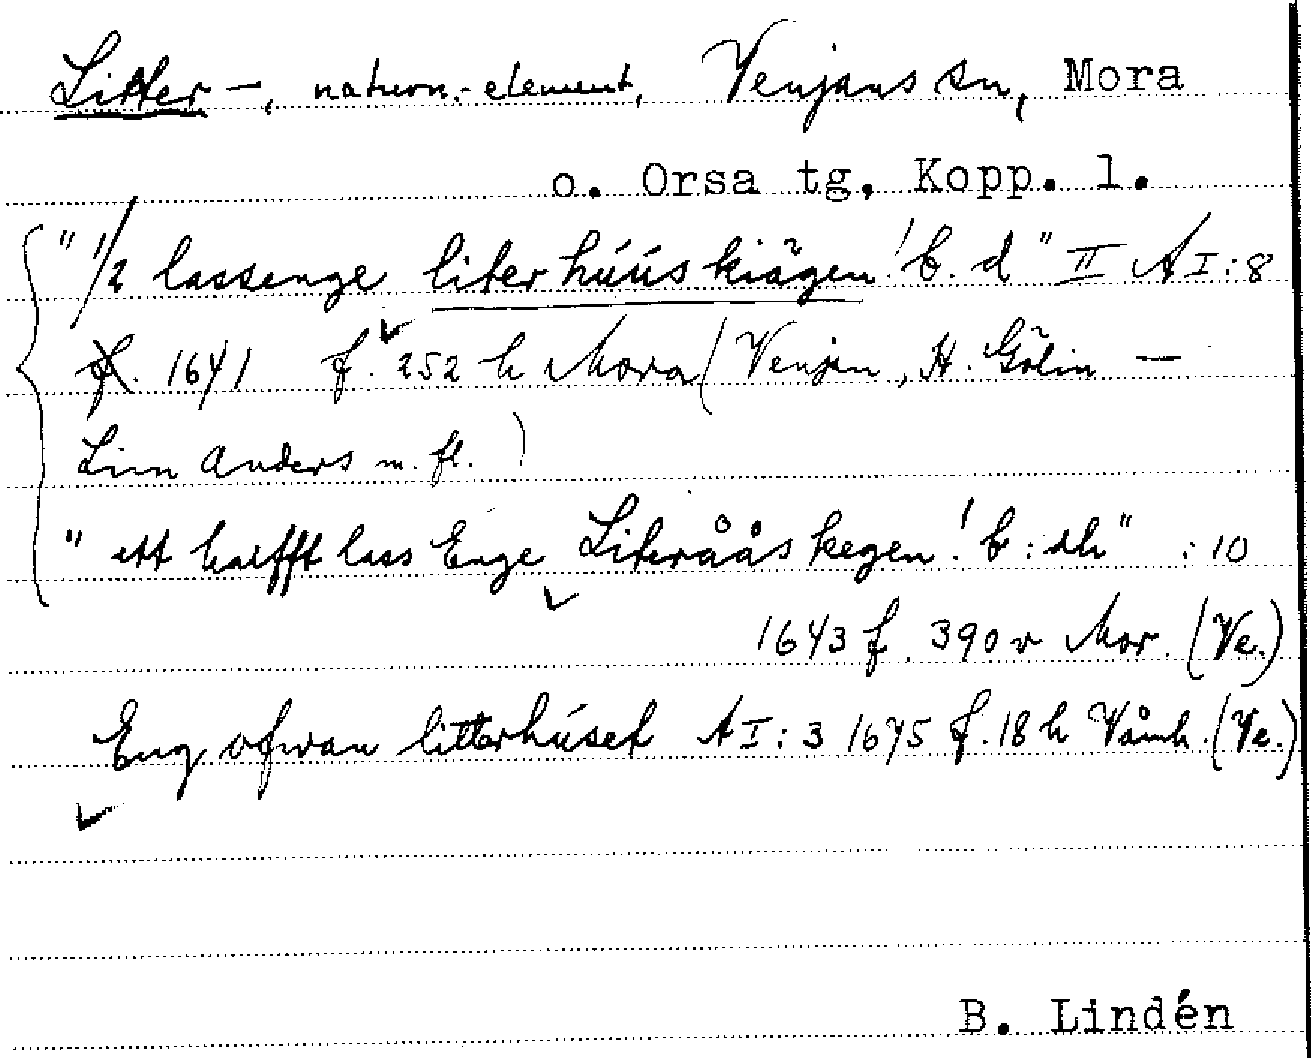 Litter-, naturn.-element, Venjans sn, Mora
o. Orsa tg, Kopp. l.
" 1/2 lassenge literhúús kiägen! b. d" II A I:8
1641 f. 252 h Mora (Venjan, H. Gölin —
Linn Anders m. fl.)
" ett halfft lass Enge Literåås kegen! b: dh" :10
1643 f. 390 v Mor. (Ve.)
Eng ofwan litterhúset A I:3 1675 f. 18 h Våmh. (Ve.)
B. Lindén